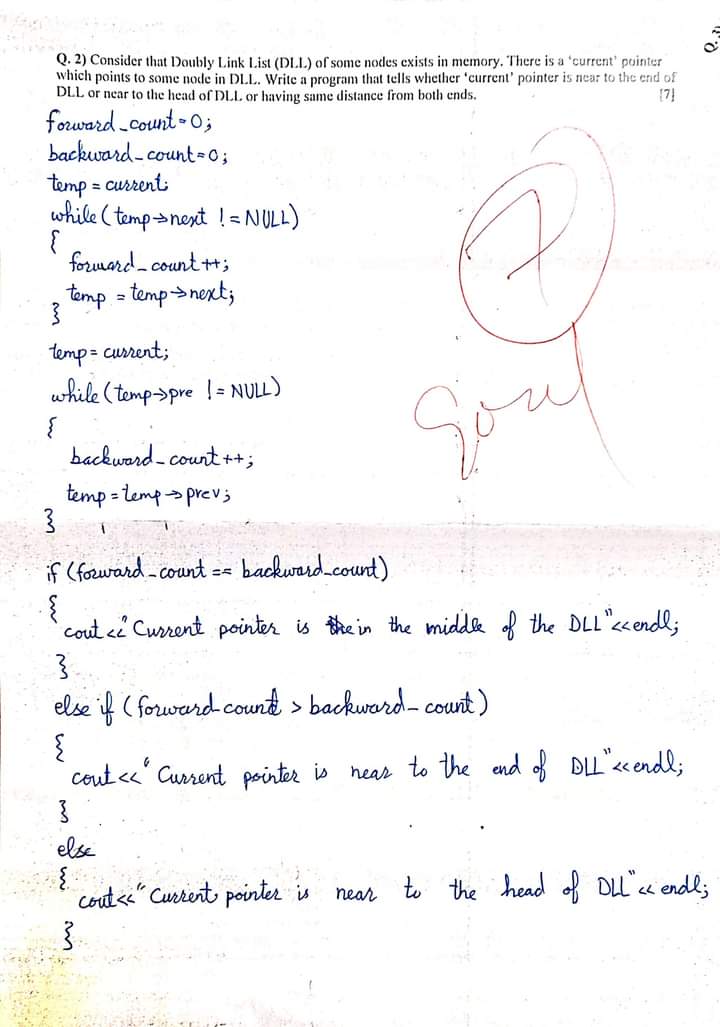 Q. 2) Consider that Doubly Link List (DLL) of some nodes exists in memory. There is a 'current' pointer
which points to some node in DLL. Write a program that tells whether 'current' pointer is near to the end of
DLL or near to the head of DLL or having same distance from both ends. [7]
forward_count=0;
backward_count=0;
temp = current;
while(temp→next != NULL)
{
forward_count++;
temp = temp→next;
}
temp = current;
while(temp→pre != NULL)
{
backward_count++;
temp = temp→prev;
}
if (forward_count == backward_count)
{
cout<<"Current pointer is in the middle of the DLL"<<endl;
}
else if (forward_count > backward_count)
{
cout<<"Current pointer is near to the end of DLL"<<endl;
}
else
{
cout<<"Current pointer is near to the head of DLL"<<endl;
}
7